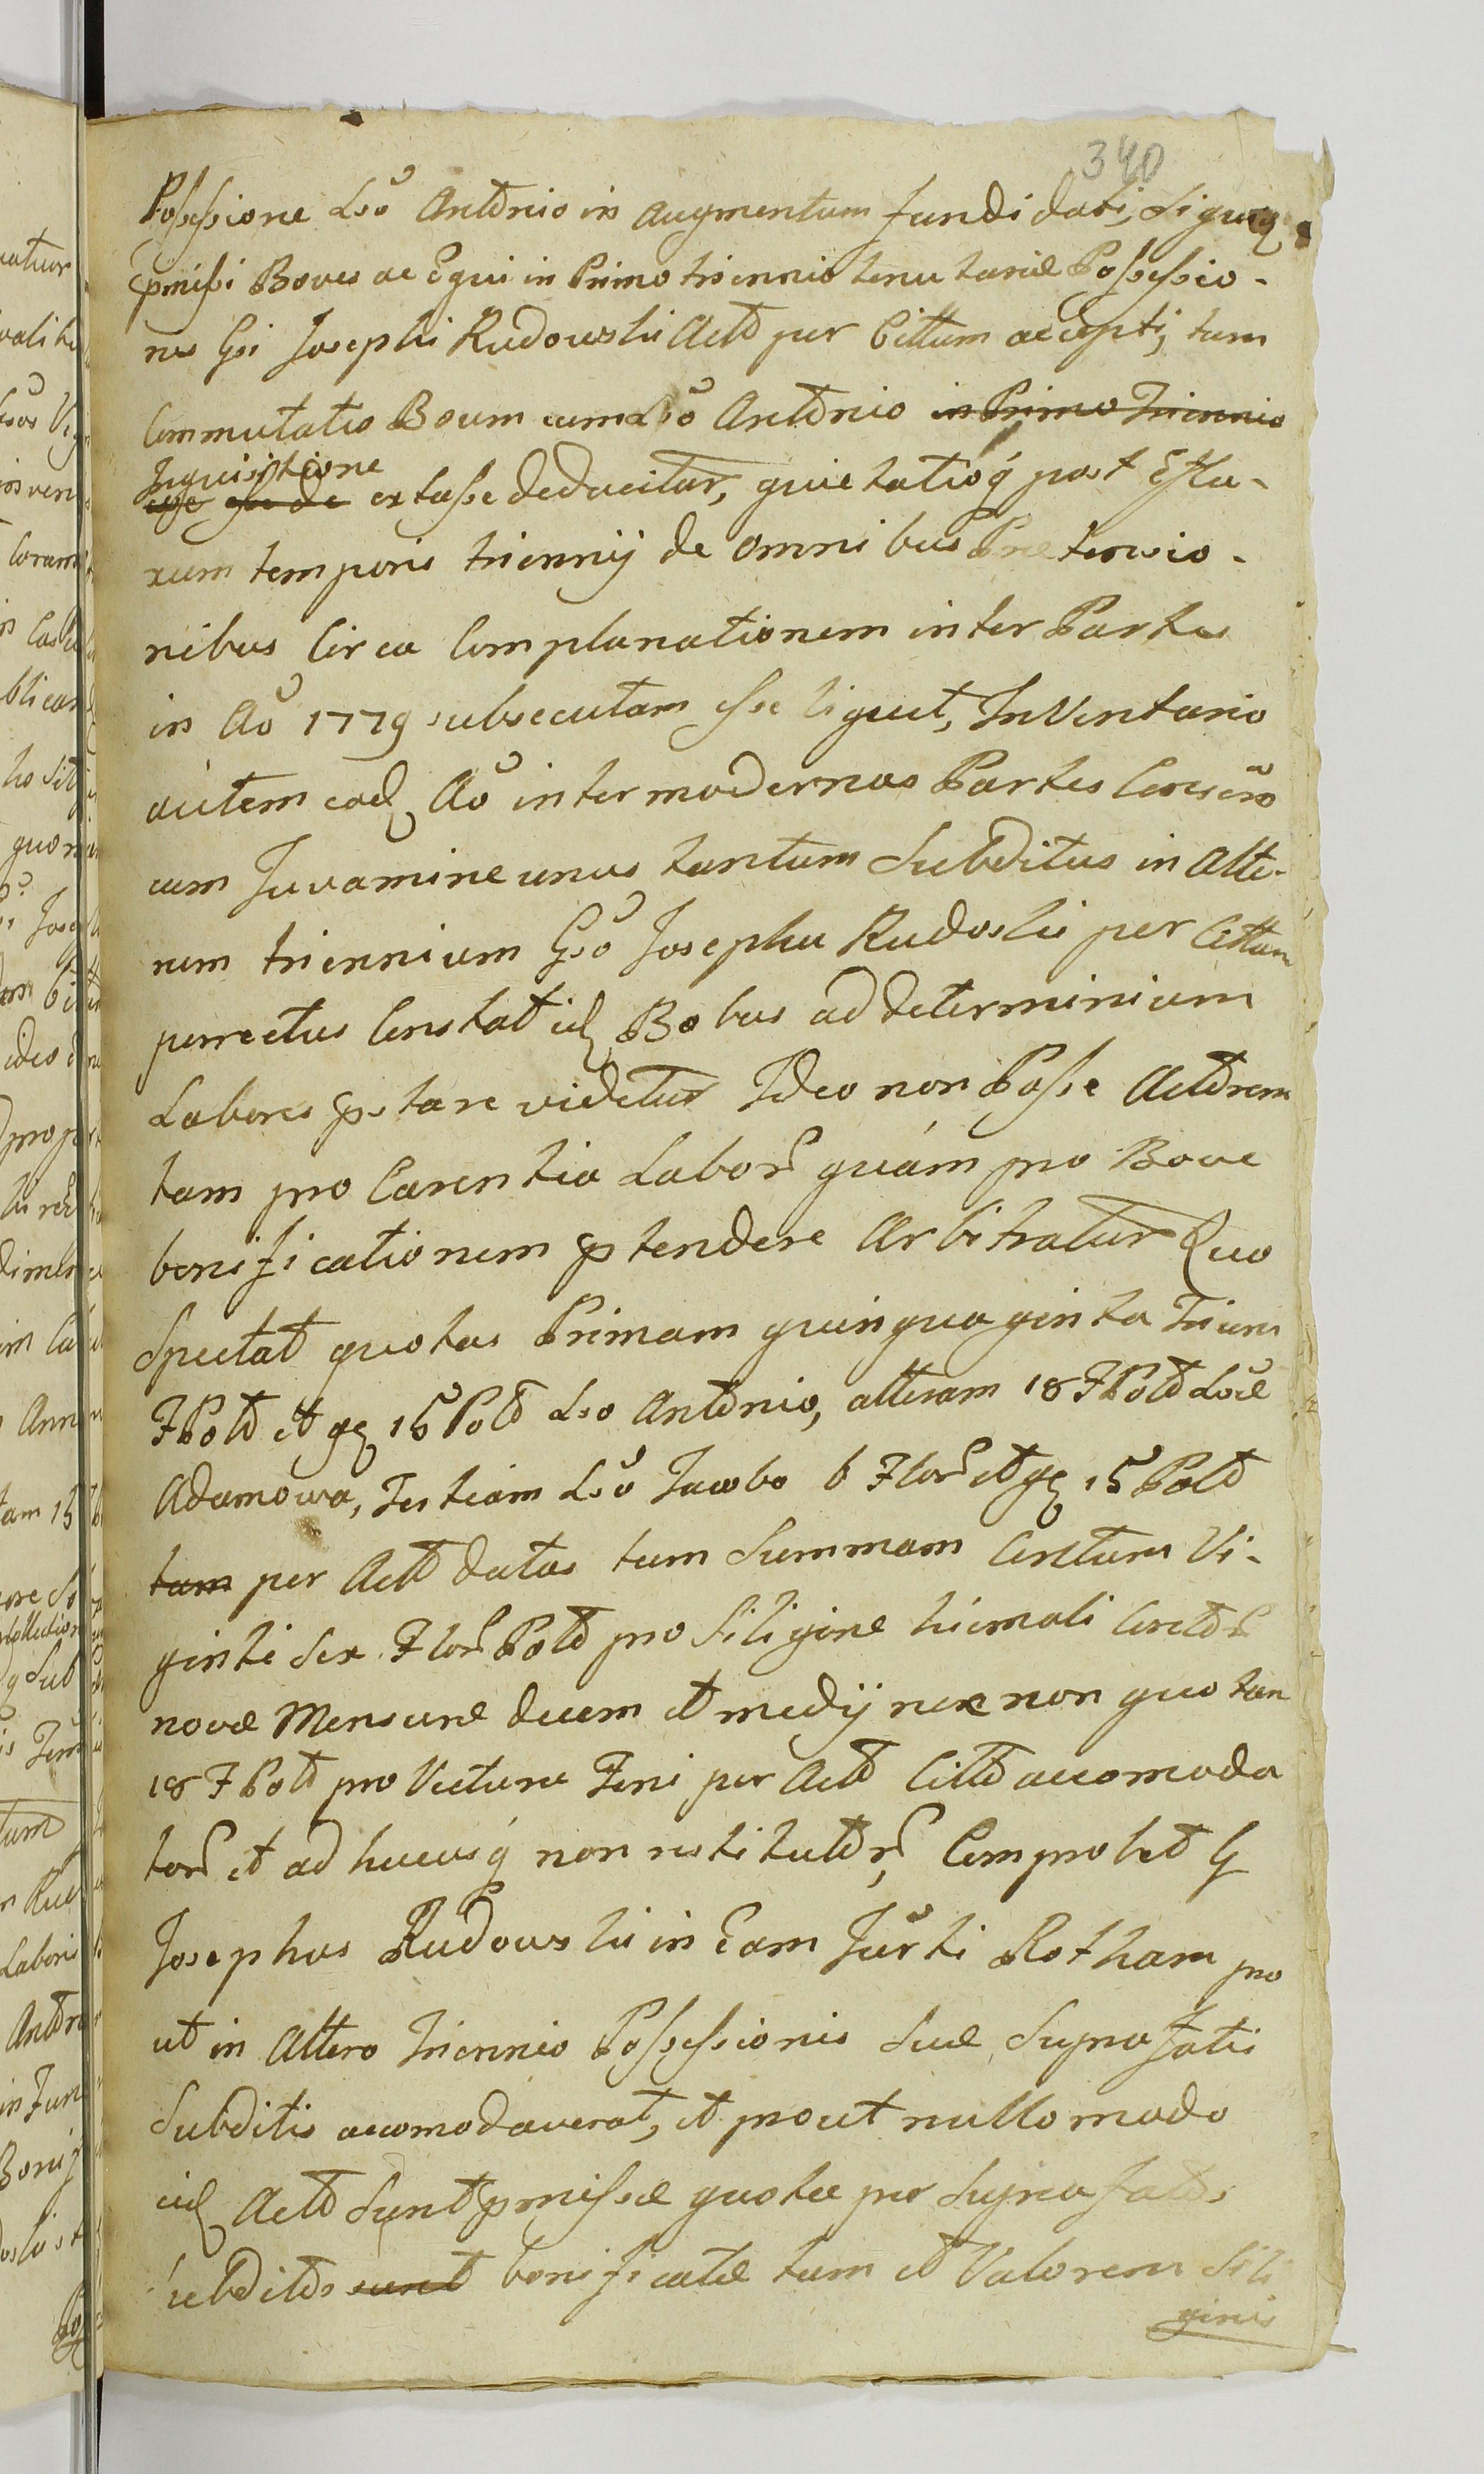 340
Possessione Lsŏ Antonio in augmentum fundi dati, siquidq
pmissi Boves ac Equi in Primo triennio tenutariæ Possessio-
nis Gsi Josephi Rudowski Actō per Cittum accepti, tum
Commutatio Boum cum Lsŏ Antonio in Primo Triennio
Inquisitione
esse extasse deducitur, quietatioq́ post Efflu-
xum temporis triennij de omnibus Prætensio-
nibus Circa Complanationem inter Partes
in Aŏ 1779 subsecutam esse liquet, InVentario
autem eod Aŏ inter modernas Partes Consčro
cum Juvamine unus tantum Subditus in Alte-
rum triennium Gsŏ Josepho Rudoski per Cittum
porrectus Constat eid Bobus ad determinium
Labores pstare videtur Ideo non Posse Actorem
tam pro Carentia Labor quám pro Bove
bonificationem ptendere Arbitratur Quo
Spectat quotas Primam quinquaginta Trium
FPolō et gr 15 Polō Lso Antonio, alteram 18 FPolō Lsæ
Adamowa, Tertiam Lsŏ Jacobo 6 Flor et gr 15 Polō
tam per Actō datas tum Summam Centum Vi-
ginti Sex Flor Polō pro Siligine hiemali Coretor
novæ Mensuræ decem et medij nec non quotam
18 F Polō pro Vectura Feni per Actō Cittō accomoda
tor et ad hucusq́ non restitutor, Comprobet G
Josephus Rudowski in Eam Jurti Rotham pro
ut in Altero Triennio Possessionis Suæ Supra fatis
Subditis accomodaverat, et prout nullo modo
eid Actō sunt pmissæ quotæ per Supra fatos
subditos sunt bonificatæ tam et Valorem Sili
ginis